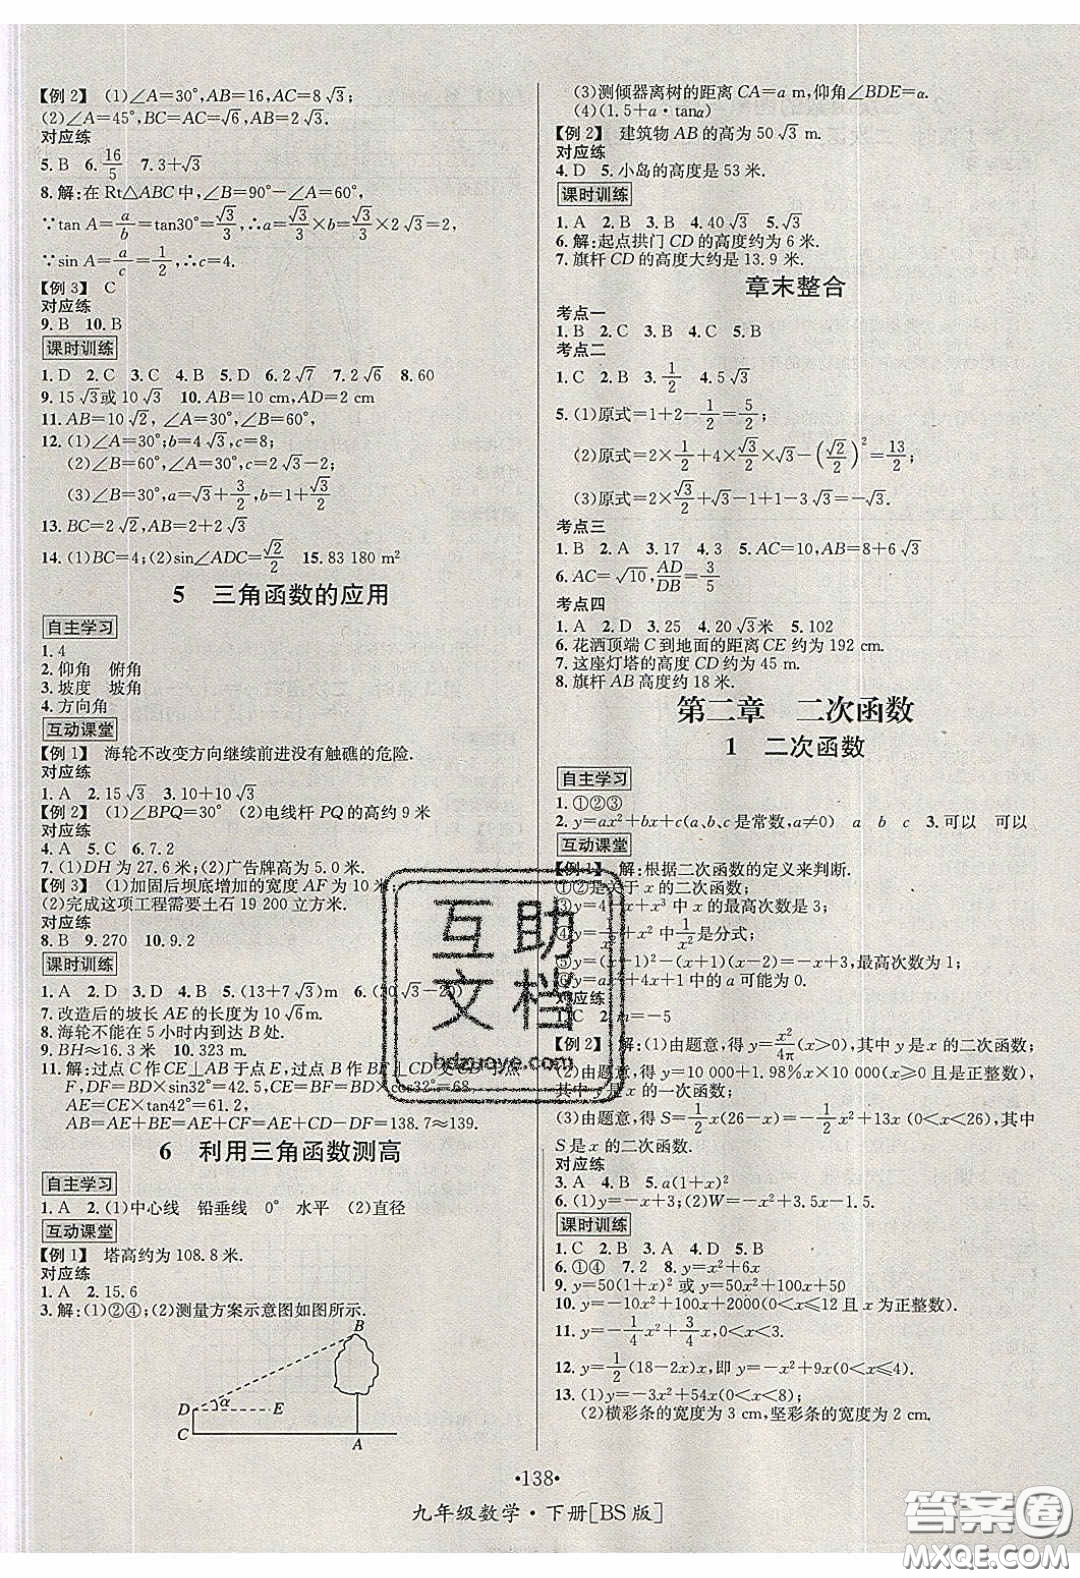 【例 2】 (1)∠A=30°,AB=16,AC=8√3;
(2)∠A=45°,BC=AC=√6,AB=2√3.
对应练
5. B 6. 16/5 7. 3+√3
8. 解:在 Rt△ABC 中,∠B=90°-∠A=60°,
∵tan A=a/b=tan30°=√3/3,∴a=√3/3×b=√3/3×2√3=2.
∵sin A=a/c=1/2,∴c=4.
【例 3】 C
对应练
9. B 10. B
课时训练
1. D 2. C 3. C 4. B 5. D 6. 2√7 7. 2√7 8. 60
9. 15√3或 10√3 10. AB=10 cm,AD=2 cm.
11. AB=10√2, ∠A=30°,∠B=60°,
12. (1)∠A=30°;b=4√3,c=8;
(2)∠B=60°,∠A=30°,c=2√3-2;
(3)∠B=30°,a=√3+3/2,b=1+√3/2
13. BC=2√2,AB=2+2√3
14. (1)BC=4;(2)sin∠ADC=√2/2 15. 83 180 m²
5 三角函数的应用
自主学习
1. 4
2. 仰角 俯角
3. 坡度 坡角
4. 方向角
互动课堂
【例 1】 海轮不改变方向继续前进没有触礁的危险.
对应练
1. A 2. 15√3 3. 10+10√3
【例 2】 (1)∠BPQ=30° (2)电线杆 PQ 的高约 9 米
对应练
4. A 5. C 6. 7.2
7. (1)DH 为 27.6 米;(2)广告牌高为 5.0 米.
【例 3】 (1)加固后坝底增加的宽度 AF 为 10 米;
(2)完成这项工程需要土石 19 200 立方米.
对应练
8. B 9. 270 10. 9.2
课时训练
1. A 2. D 3. D 4. A 5. (13+7√3)m 6. (20√3-20)
7. 改造后的坡长 AE 的长度为 10√6m.
8. 海轮不能在 5 小时内到达 B 处.
9. BH≈16.3 米 10. 323 m.
11. 解:过点 C 作 CE⊥AB 于点 E,过点 B 作 BF⊥CD 交 CD 于点
F,DF=BD×sin32°=42.5,CE=BF=BD×cos32°=68
AE=CE×tan42°=61.2,
AB=AE+BE=AE+CF=AE+CD-DF=138.7≈139.
6 利用三角函数测高
自主学习
1. A 2. (1)中心线 铅垂线 0° 水平 (2)直径
互动课堂
【例 1】 塔高约为 108.8 米.
对应练
1. A 2. 15.6
3. 解:(1)②④;(2)测量方案示意图如图所示.
B
D α E
C A
(3)测倾器离树的距离 CA=a m,仰角∠BDE=α.
(4)(1.5+a·tanα)
【例 2】 建筑物 AB 的高为 50√3 m.
对应练
4. D 5. 小岛的高度是 53 米.
课时训练
1. A 2. B 3. B 4. 40√3 5. √3
6. 解:起点拱门 CD 的高度约为 6 米.
7. 旗杆 CD 的高度大约是 13.9 米.
章末整合
考点一
1. B 2. C 3. B 4. C 5. B
考点二
1. C 2. B 3. 1/2 4. 5√3
5. (1)原式=1+2-1/2=5/2;
(2)原式=2×1/2+4×√3/2×√3-(√2/2)²=13/2
(3)原式=2×√3/2+√3-1+1-3√3=-√3.
考点三
1. B 2. A 3. 17 4. √3 5. AC=10,AB=8+6√3
6. AC=√10,AD/DB=3/5
考点四
1. A 2. D 3. 25 4. 20√3米 5. 102
6. 花洒顶端 C 到地面的距离 CE 约为 192 cm.
7. 这座灯塔的高度 CD 约为 45 m.
8. 旗杆 AB 高度约为 18 米.
第二章 二次函数
1 二次函数
自主学习
1. ①②③
2. y=ax²+bx+c(a、b、c是常数,a≠0) a b c 3. 可以 可以
互动课堂
【例 1】 解:根据二次函数的定义来判断.
①②是关于 x 的二次函数;
③y=4-x+x³ 中 x 的最高次数是 3;
④y=1/x²-x+x² 中1/x²是分式;
⑤y=(x-1)²-(x+1)(x-2)=-x+3,最高次数为 1;
⑥y=ax²-4x+1 中 a 可能为 0.
对应练
1. C 2. m=-5
【例 2】 解:(1)由题意,得 y=x²/4π(x>0),其中 y 是 x 的二次函数;
(2)由题意,得 y=10 000+1.98%x×10 000(x≥0 且是正整数),
其中 y 是 x 的一次函数;
(3)由题意,得 S=1/2x(26-x)=-1/2x²+13x (0<x<26),其中
S是 x 的二次函数.
对应练
3. A 4. B 5. a(1+x)²
6. (1)y=-x+3;(2)W=-x²+3x-1.5.
课时训练
1. C 2. B 3. B 4. D 5. A
6. ①④ 7. 2 8. y=x²+6x
9. y=50(1+x)² 或 y=50x²+100x+50
10. y=-10x²+100x+2000(0<x≤12 且 x 为正整数).
11. y=-1/4x²+3/4x,0<x<3.
12. y=1/2(18-2x)x,即 y=-x²+9x(0<x≤4).
13. (1)y=-3x²+54x(0<x<18);
(2)横彩条的宽度为 3 cm,竖彩条的宽度为 2 cm.
互助文档
hdzuoye.com
·138·
九年级数学·下册[BS版]
答案圈
MXQE.COM